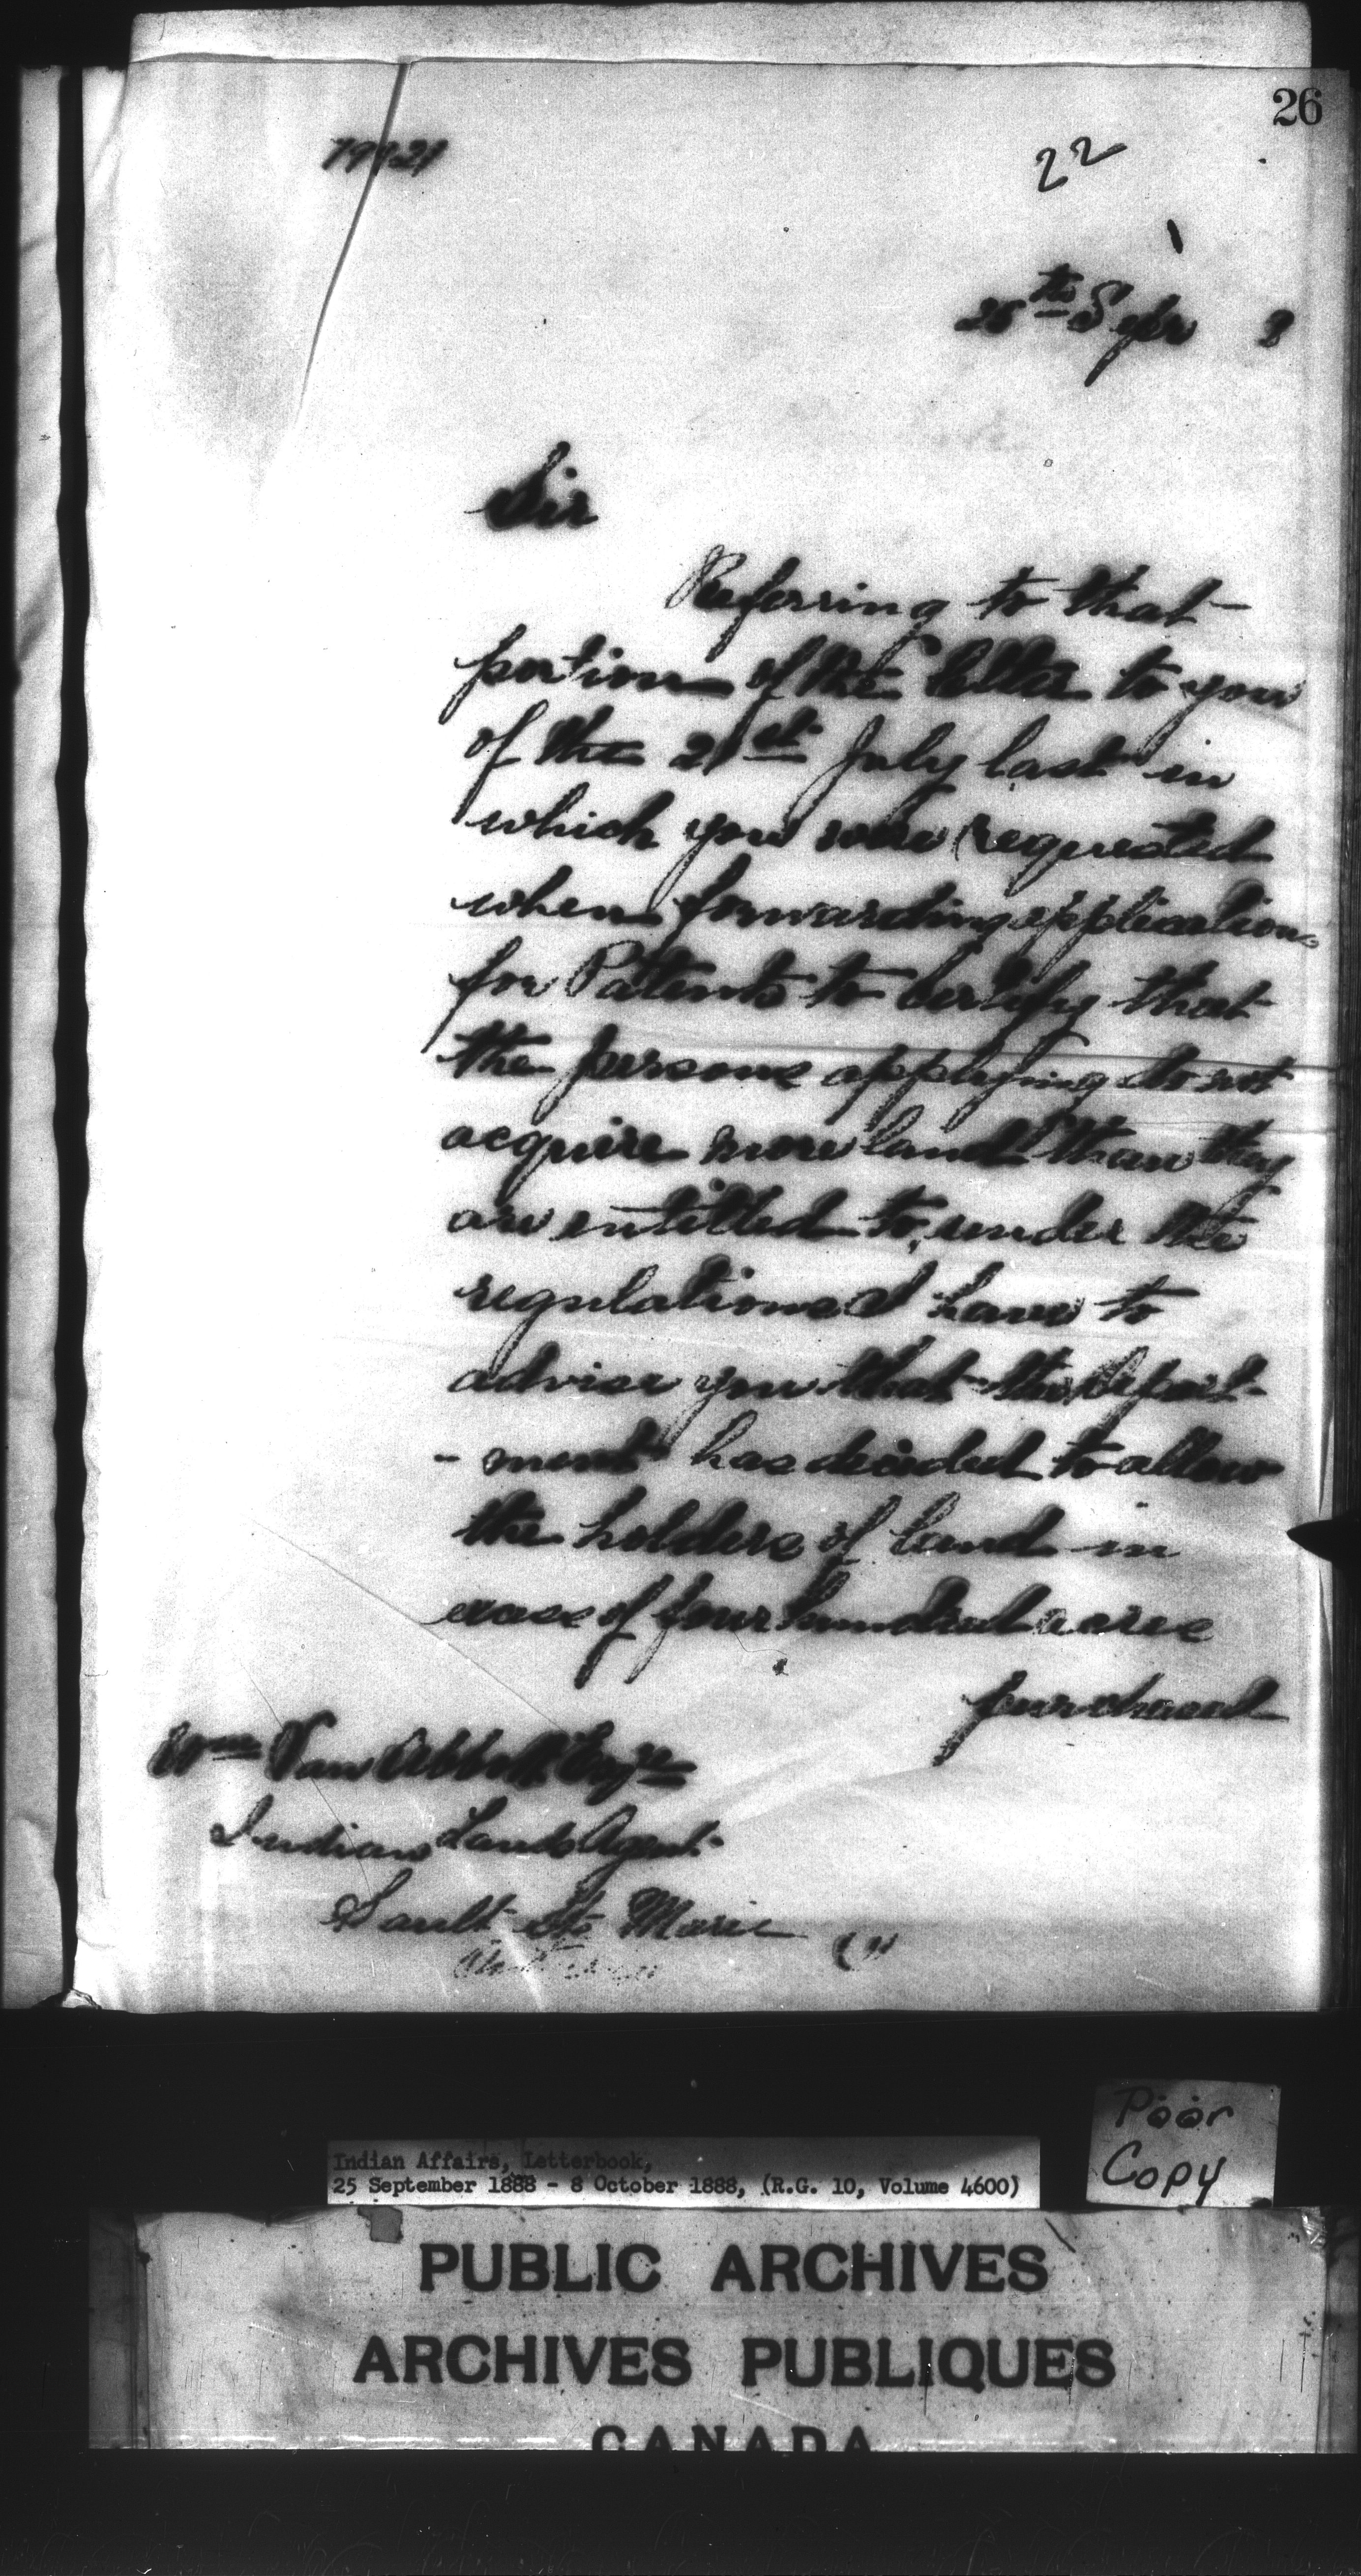 26
22
25th Septr 8
Sir
Referring to that
portion of the letter to you
of the 21st July last in
which you were requested
when forwarding applications
for Patents to certify that
the persons applying do not
acquire more land than they
are entitled to, under the
regulations I have to
advise you that the Depart-
-ment has decided to allow
the holders of land in
excess of four hundred acres
purchased
Wm Van Abbott Esqre
Indian Lands Agent
Sault Ste Marie
Ontario
Poor
Copy
Indian Affairs, Letterbook,
25 September 1888 - 8 October 1888, (R.G. 10, Volume 4600)
PUBLIC ARCHIVES
ARCHIVES PUBLIQUES
CANADA